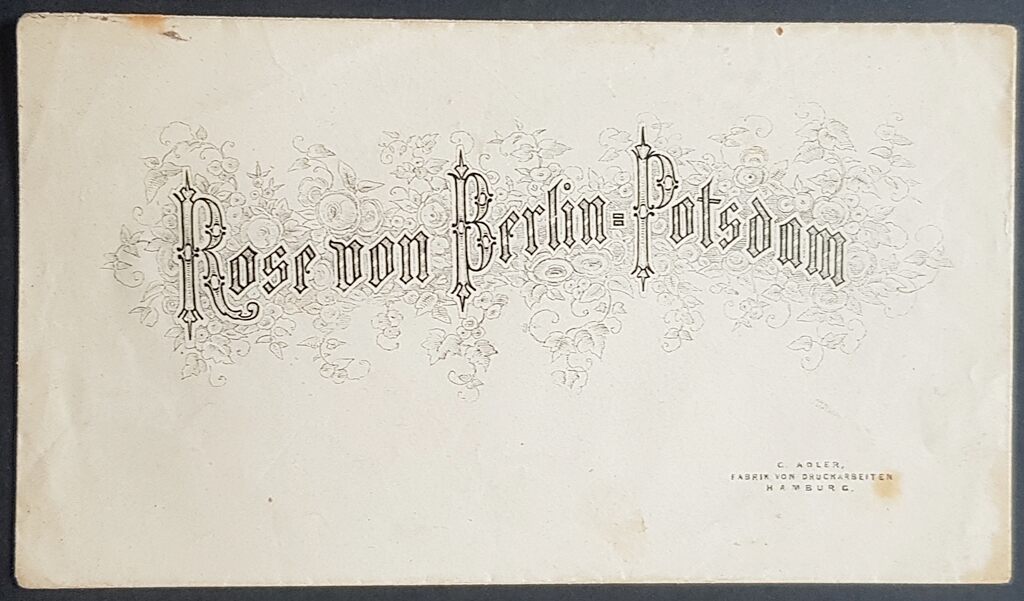 Rose von Berlin=Potsdam
C. ADLER,
FABRIK VON DRUCKARBEITEN
HAMBURG.